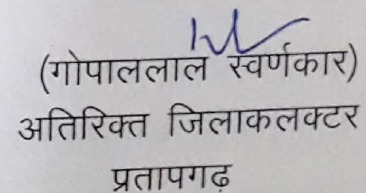 (गोपाललाल स्वर्णकार)
अतिरिक्त जिलाकलक्टर
प्रतापगढ़